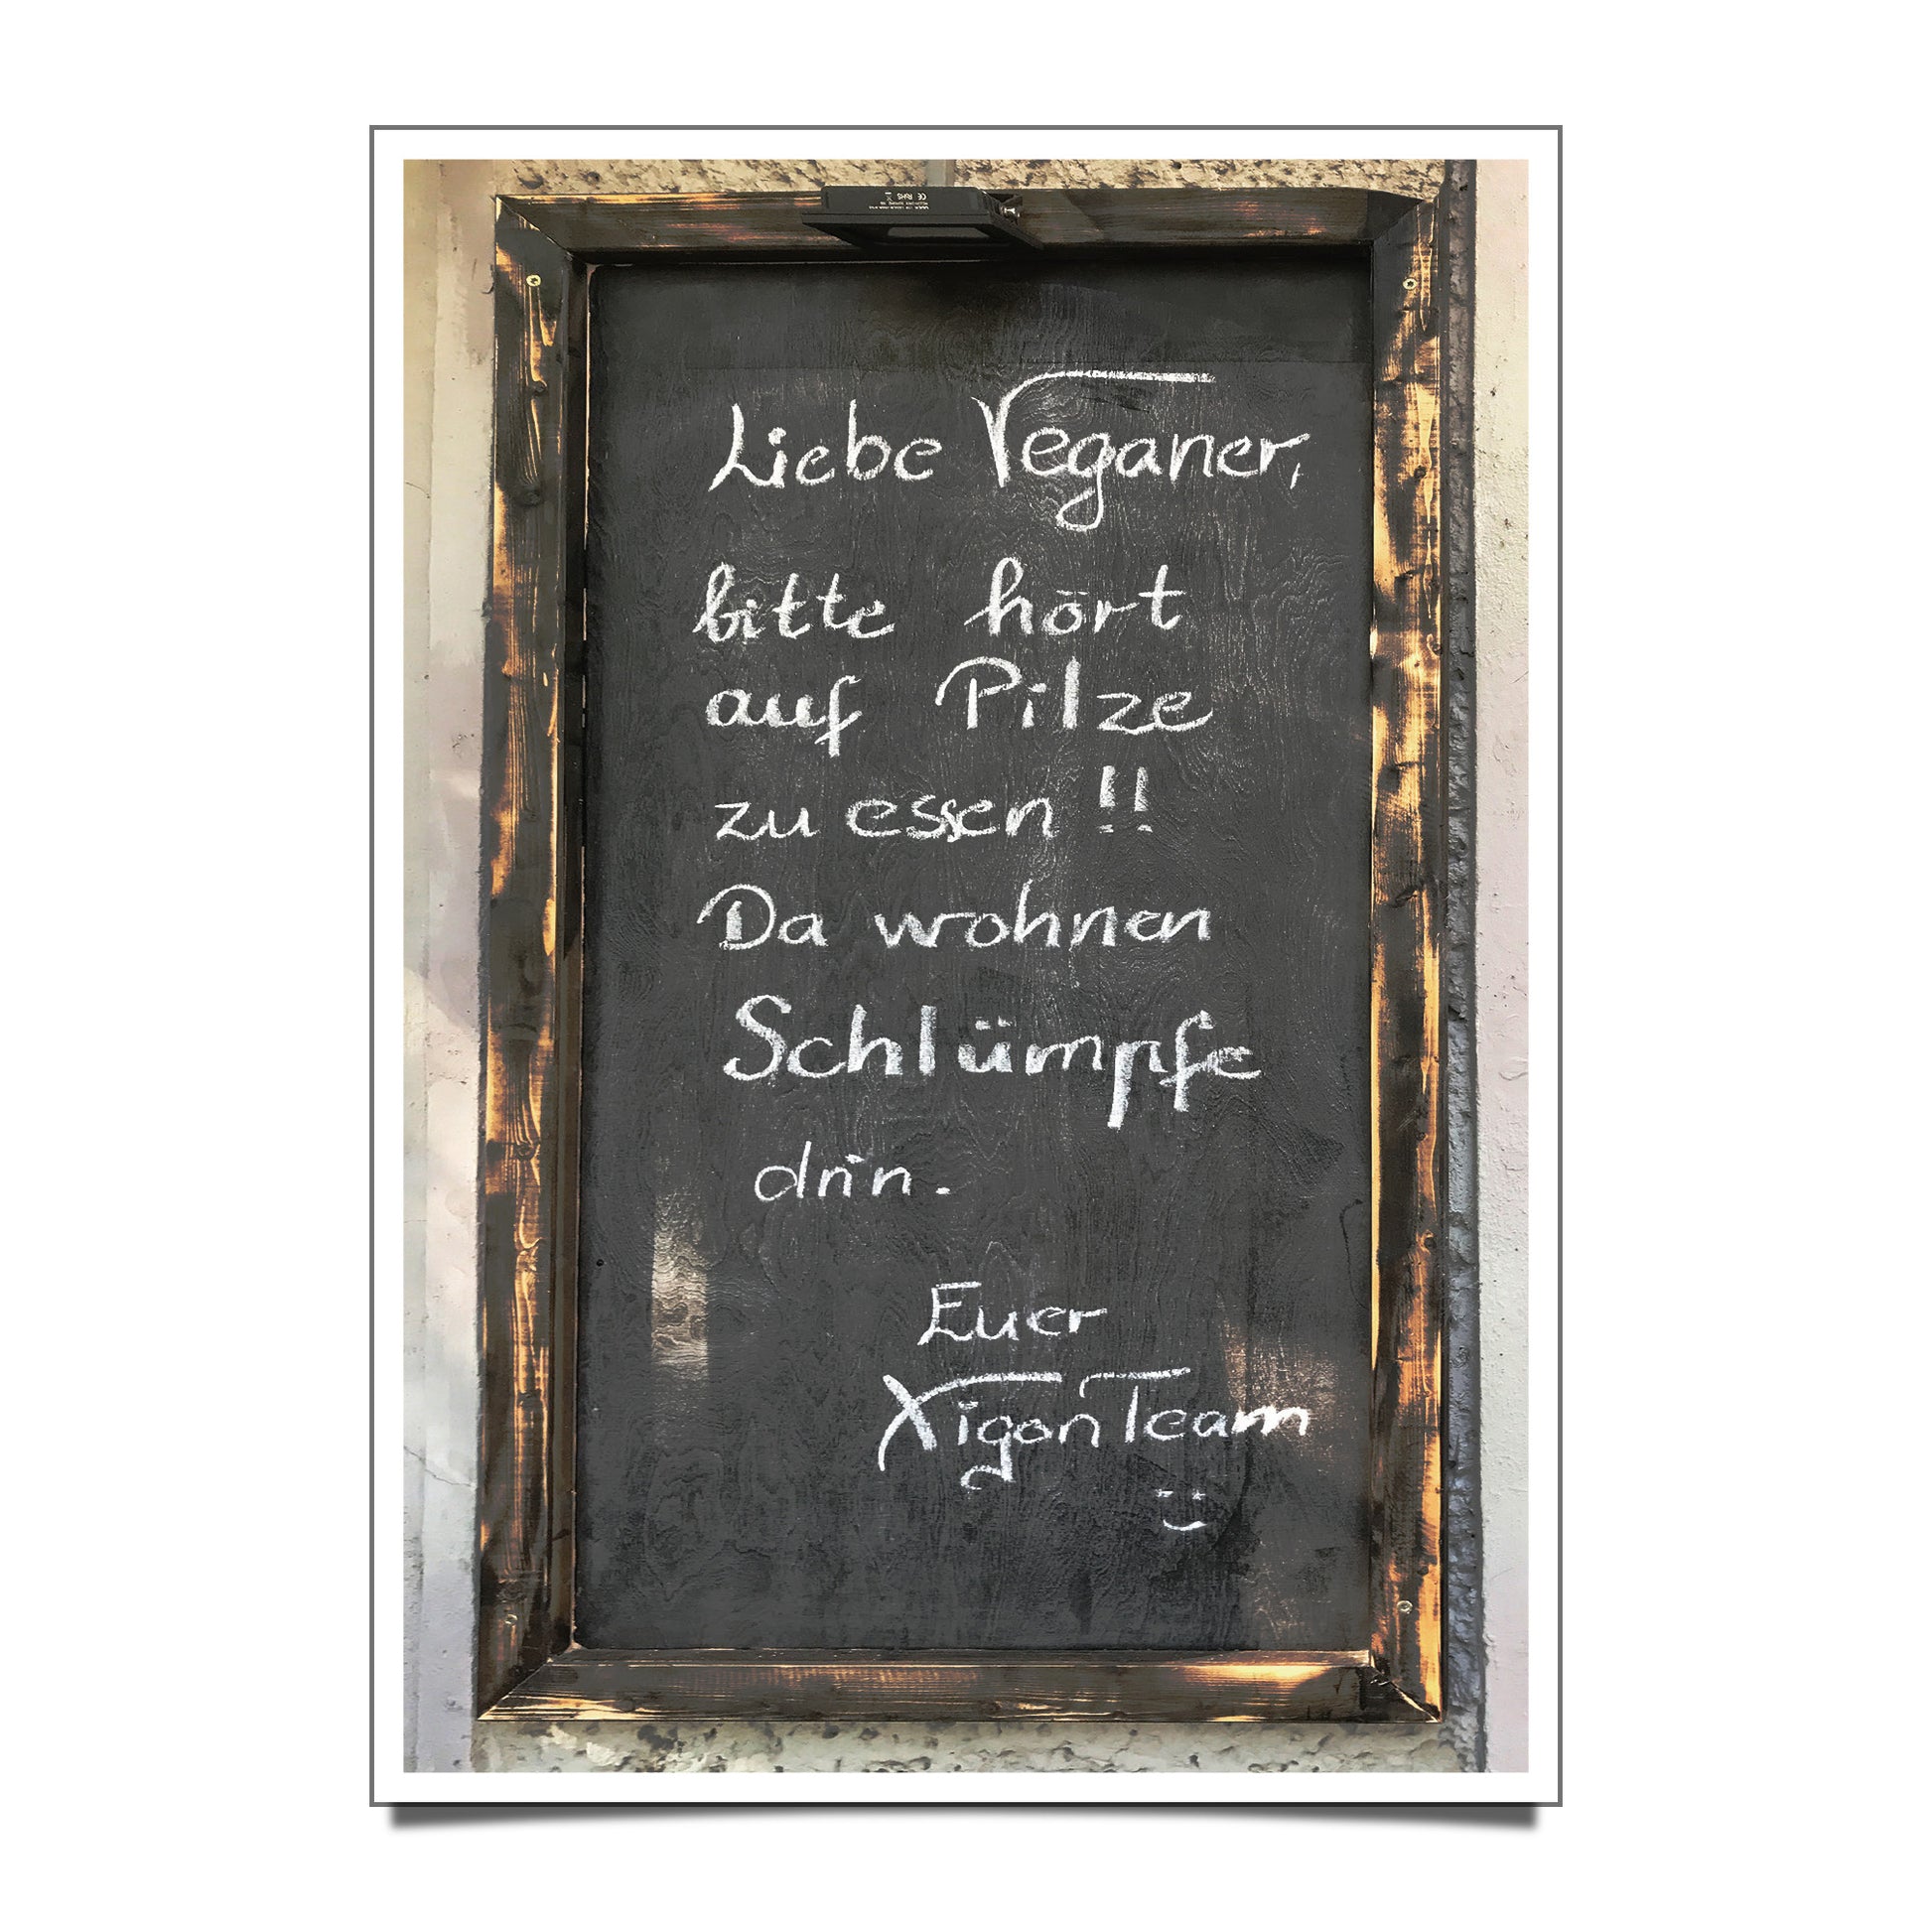 Liebe Veganer,
bitte hört
auf Pilze
zu essen!!
Da wohnen
Schlümpfe
drin.
Euer
Xigon Team